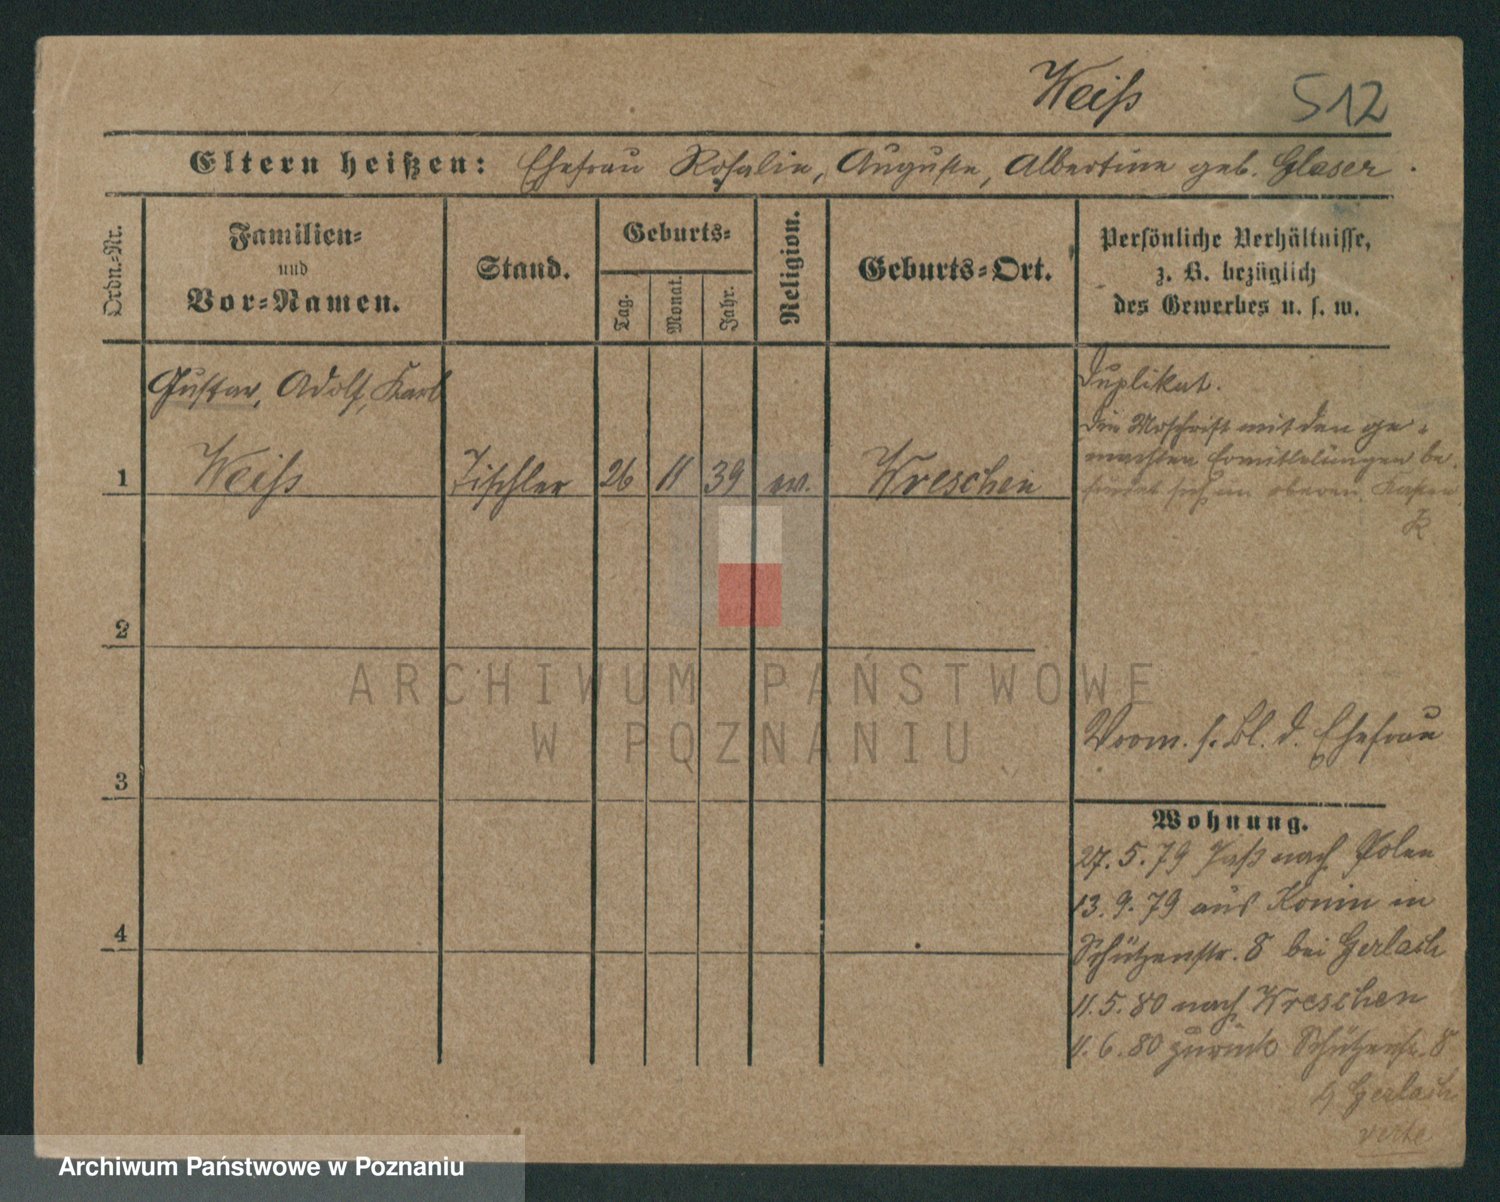 Weiß 512
Eltern heißen: Ehefrau Rosalie, Auguste, Albertine geb. Glaser.
Ordn.-Nr.
Familien-
und
Vor-Namen.
Stand.
Geburts-
Tag.
Monat.
Jahr.
Religion.
Geburts-Ort.
Persönliche Verhältnisse,
z. B. bezüglich
des Gewerbes u. s. w.
Gustav, Adolf, Karl
1 Weiß Tischler 26 11 39 ev. Wreschen
Duplikat.
Die Urschrift mit den ge-
machten Ermittelungen be-
findet sich im oberen Kasten
2
ARCHIWUM PAŃSTWOWE
W POZNANIU
Verm. s. Bl. d. Ehefrau
3
Wohnung.
27.5.79 Paß nach Polen
13.9.79 aus Konin in
Schützenstr. 8 bei Gerlach
4
11.5.80 nach Wreschen
11.6.80 zurück Schützenstr. 8
b Gerlach
verte
Archiwum Państwowe w Poznaniu